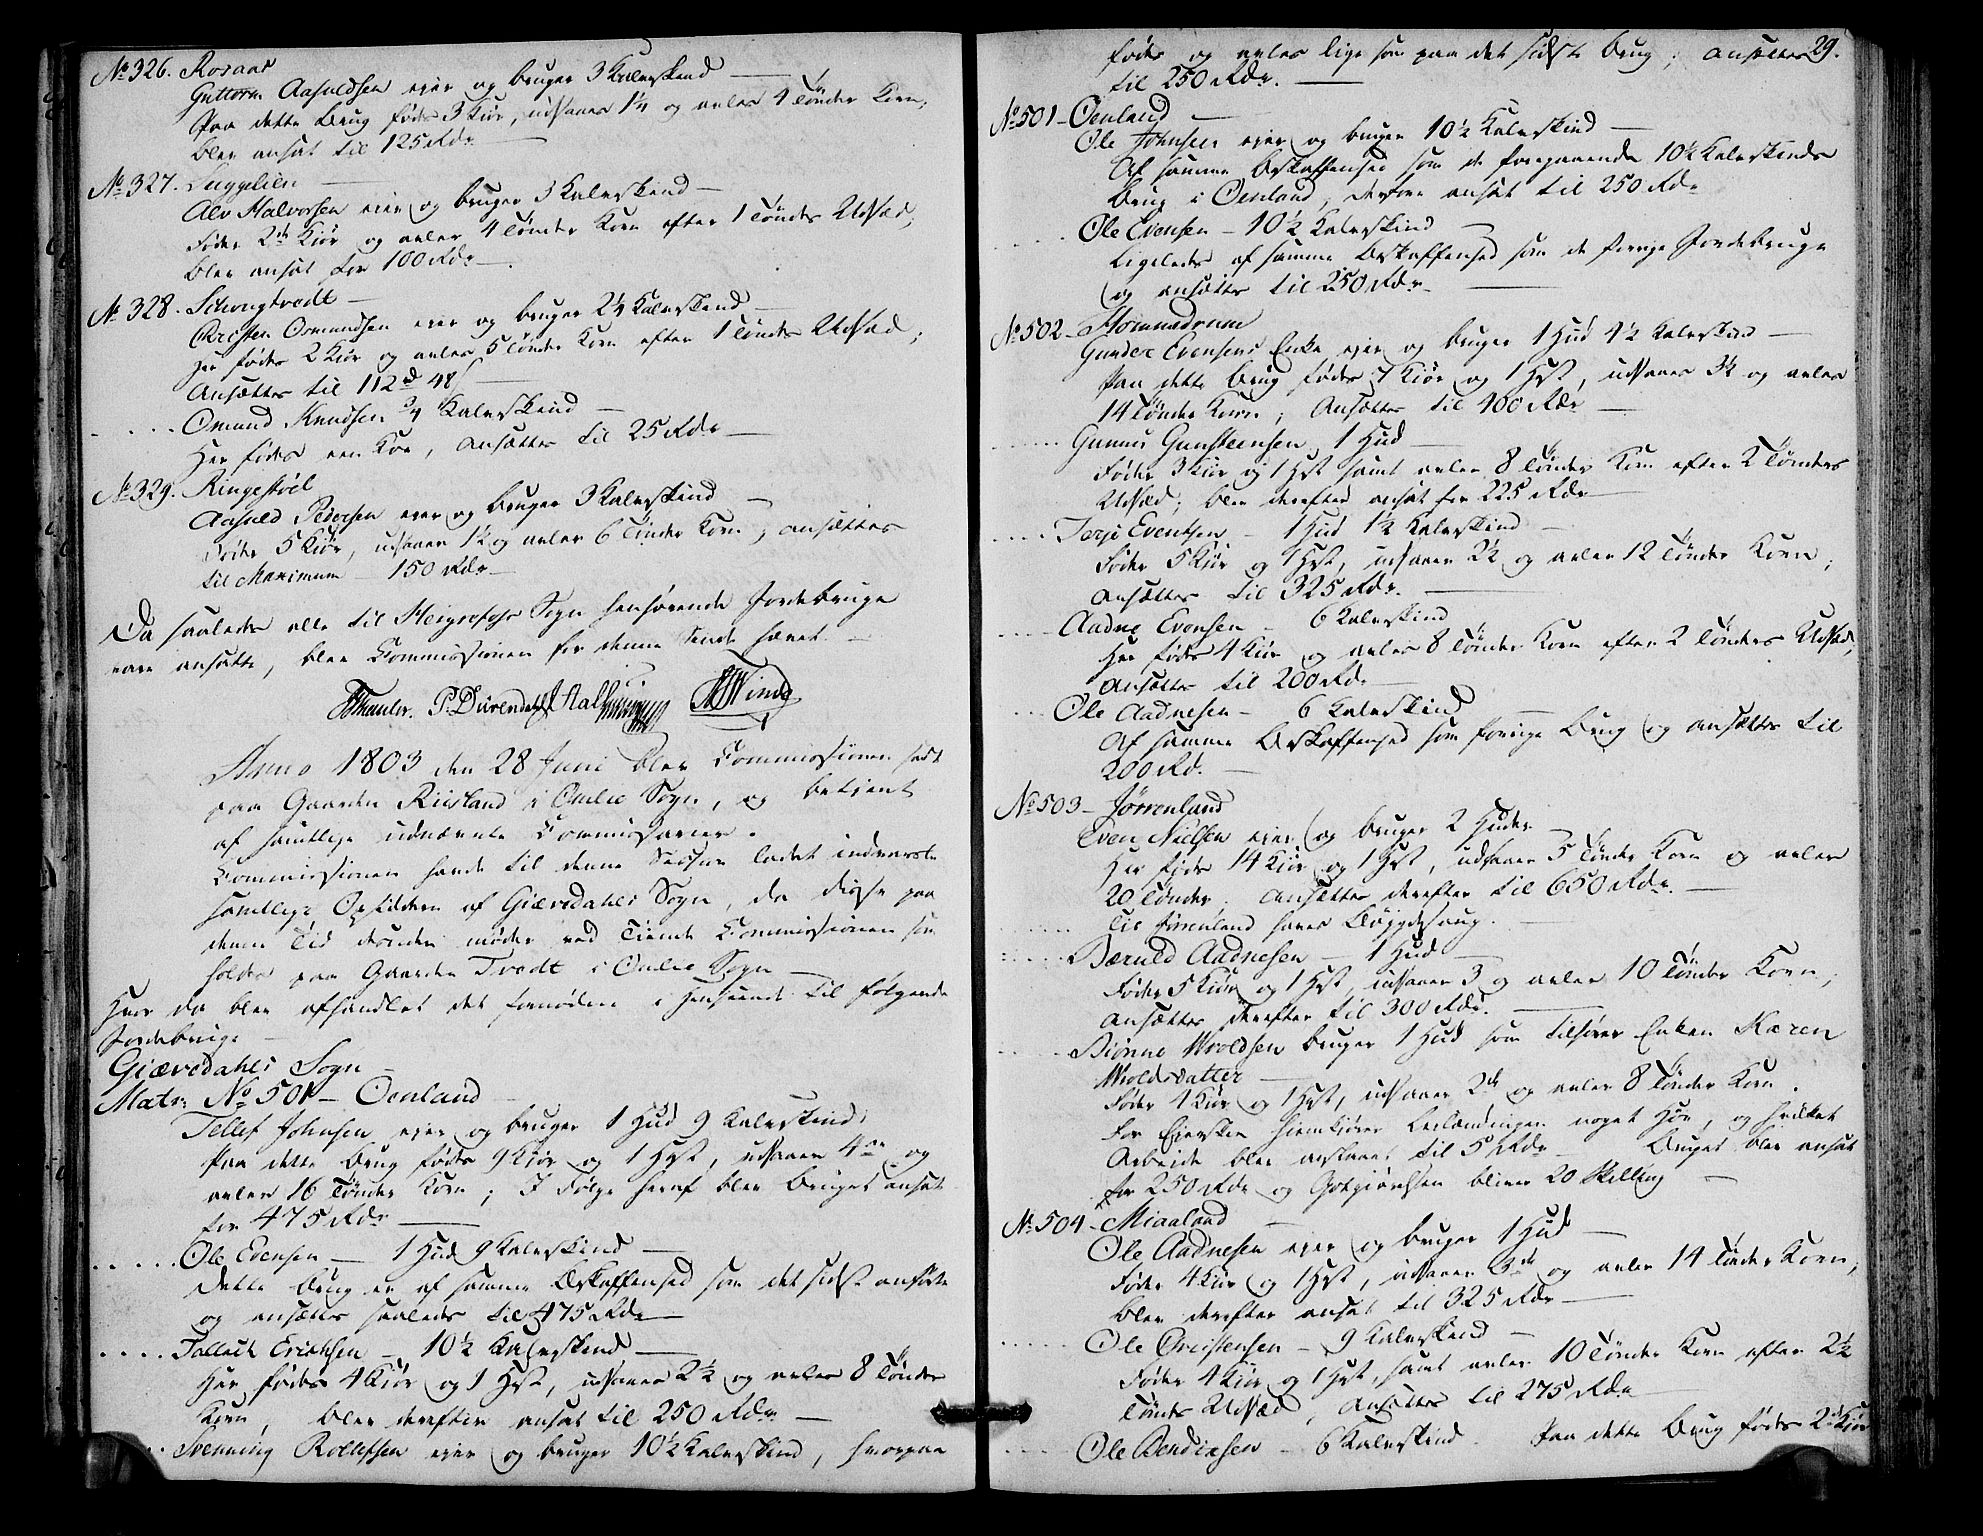 No 326. Rosaas
Guttorm Aasuldsen ejer og bruger 3 Kalvskind —
Paa dette Brug födes 3 Kiör, udsaaes 1¼ og avles 4 Tönder Korn,
blev ansat til 125 Rdr —
No 327. Suggelien —
Alv Halvorsen ejer og bruger 3 Kalveskind —
Föder 2de Kiör og avler 4 Tönder Korn efter 1 Töndes Udsæd,
blev ansat for 100 Rdr —
No 328. —
Christen Osmundsen ejer og bruger 2¼ Kalveskind —
Her födes 2 Kiör og avles 5 Tönder Korn efter 1 Töndes Udsæd;
Ansættes til 112 d 48 s —
Omund Knudsen ¾ Kalveskind —
Her födes een Koe, ansættes til 25 Rdr —
No 329. Ringestöel
Aasuld Pedersen ejer og bruger 3 Kalveskind —
Föder 5 Kiör, udsaaer 1½ og avler 6 Tönder Korn, ansættes
til Maximum — 150 Rdr —
Da saaledes alle til Heirefoss Sogn henhörende Jordebruge
vare ansatte, blev Commissionen for denne Sinde hævet. —
Anno 1803 den 28 Juni blev Commissionen sadt
paa Gaarden Riisland i Omlie Sogn, og betient
af samtlige udnævnte Commissarier.
Commissionen havde til denne Session ladet indvarsle
samtlige Opsiddere af Giævedahls Sogn, da disse paa
denne Tid desuden möder ved Tiende Commissionen som
holdes paa Gaarden Tvedt i Omlie Sogn —
Hvor da blev afhandlet det fornödne i Henseende til fölgende
Jordebruge —
Giævedahls Sogn —
Matr: No 501 — Oenland —
Tellef Johnsen ejer og bruger 1 Hud 9 Kalveskind,
Paa dette Brug födes 9 Kiör og 1 Hest, udsaaes 4re og
avles 16 Tönder Korn; I Fölge heraf blev Bruget ansat
for 475 Rdr —
. . . . . Ole Evensen — 1 Hud 9 Kalveskind —
Dette Brug er af samme Beskaffenhed som det sidst ansatte
og ansættes saaledes til 475 Rdr —
. . . . Tallack Erichsen — 10½ Kalveskind —
Her födes 4 Kiör og 1 Hest, udsaaes 2½ og avles 8 Tönder
Korn, blev derefter ansat til 250 Rdr —
. . Svenning Rollefsen ejer og bruger 10½ Kalveskind, hvorpaa
födes og avles lige som paa det sidste Brug; ansættes 29.
til 250 Rdr. —
No 501 — Oenland —
Ole Johnsen ejer og bruger 10½ Kalveskind —
Af samme Beskaffenhed som de foregaaende 10½ Kalveskinds
Brug i Oenland, derfore ansat til 250 Rdr
. . . . . Ole Evensen — 10½ Kalveskind —
Ligeledes af samme Beskaffenhed som de forrige Jordebruge
og ansættes til 250 Rdr —
No 502 —
Gunder Evensens Enke ejer og bruger 1 Hud 4½ Kalveskind —
Paa dette Brug födes 7 Kiör og 1 Hest, udsaaes 3½ og avles
14 Tönder Korn; Ansættes til 400 Rdr —
. . . . . Gunsteensen 1 Hud —
Föder 3 Kiör og 1 Hest samt avler 8 Tönder Korn efter 2 Tönders
Udsæd, blev derefter ansat for 225 Rdr —
. . . . Terje Eventsen — 1 Hud 1½ Kalveskind —
Föder 5 Kiör og 1 Hest, udsaaer 2½ og avler 12 Tönder Korn;
ansættes til 325 Rdr. —
. . . . Aadne Evensen — 6 Kalveskind
Her födes 4 Kiör og avles 8 Tönder Korn efter 2 Tönders Udsæd,
ansættes til 200 Rd. —
. . . Ole Aadnesen — 6 Kalveskind —
Af samme Beskaffenhed som forrige Brug og ansættes til
200 Rd. —
No 503 — Jörrenland
Even Nielsen ejer og bruger 2 Huder —
Her födes 14 Kiör og 1 Hest, udsaaes 5 Tönder Korn og avles
20 Tönder, ansættes derefter til 650 Rdr. —
Til Jörrenland haves Böjgdesaug. —
. . . . . Bæruld Aadnesen — 1 Hud —
Föder 5 Kiör og 1 Hest, udsaaer 3 og avler 10 Tönder Korn,
ansættes derefter til 300 Rdr. —
. . . . . Biönne Wroldsen bruger 1 Hud som tilhörer Enken Karen
Wroldsdatter —
Föder 4 Kiör og 1 Hest, udsaaer 2de og avler 8 Tönder Korn.
For Ejersken hiemkiörer Leilændingen noget Höe, og hvilket
Arbeide blev anslaaet til 5 Rdr — Bruget blev ansat
for 250 Rdr og Godgiörelsen bliver 20 Skilling —
No 504 — Miaaland —
Ole Aadnesen ejer og bruger 1 Hud —
Föder 4 Kiör og 1 Hest, udsaaer 3de og avler 14 Tönder Korn,
blev derefter ansat til 325 Rdr —
. . . . . Ole Christensen — 9 Kalveskind —
Föder 4 Kiör og 1 Hest, samt avler 10 Tönder Korn efter 2½
Tönders Udsæd, ansættes til 275 Rdr
. . . . Ole Bendixsen — 6 Kalveskind. Paa dette Brug födes 2de Kiör